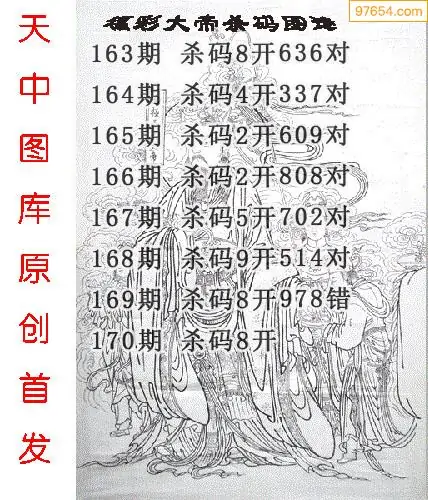 97654.com
福彩大帝杀码图谜
163期 杀码8开636对
164期 杀码4开337对
165期 杀码2开609对
166期 杀码2开808对
167期 杀码5开702对
168期 杀码9开514对
169期 杀码8开978错
170期 杀码8开
天中图库原创首发